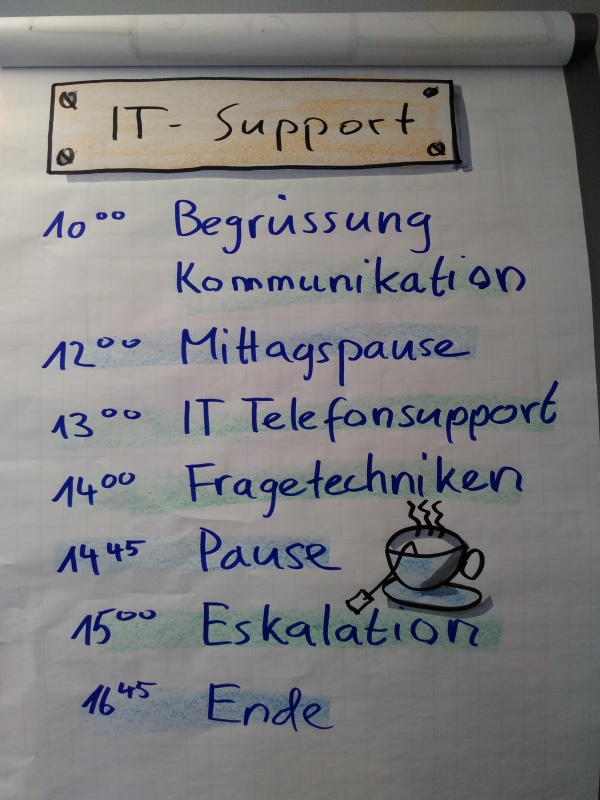 IT- Support
10⁰⁰ Begrüssung
Kommunikation
12⁰⁰ Mittagspause
13⁰⁰ IT Telefonsupport
14⁰⁰ Fragetechniken
14⁴⁵ Pause
15⁰⁰ Eskalation
16⁴⁵ Ende